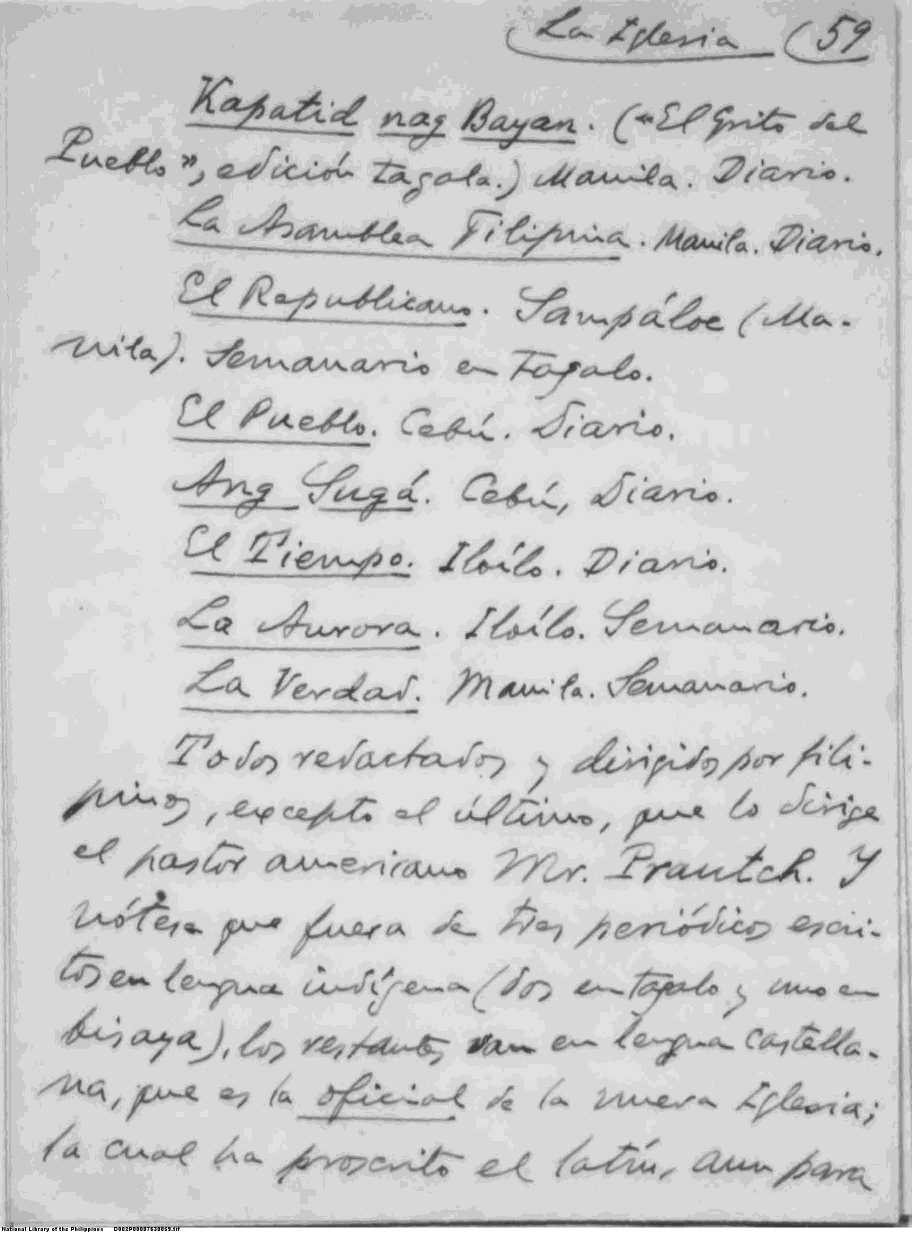 La Iglesia (59
Kapatid nag Bayan. («El Grito del
Pueblo», edición tagala.) Manila. Diario.
La Asamblea Filipina. Manila. Diario.
El Republicano. Sampáloc (Ma-
nila). Semanario en tagalo.
El Pueblo. Cebú. Diario.
Ang Sugá. Cebú, Diario.
El Tiempo. Iloílo. Diario.
La Aurora. Iloílo. Semanario.
La Verdad. Manila. Semanario.
Todos redactados y dirigidos por fili-
pinos, excepto el último, que lo dirige
el pastor americano Mr. Prautch. Y
nótese que fuera de tres periódicos escri-
tos en lengua indígena (dos en tagalo y uno en
bisaya), los restantes van en lengua castella-
na, que es la oficial de la nueva Iglesia;
la cual ha proscrito el latín, aun para
National Library of the Philippines D002P00007630059.tif